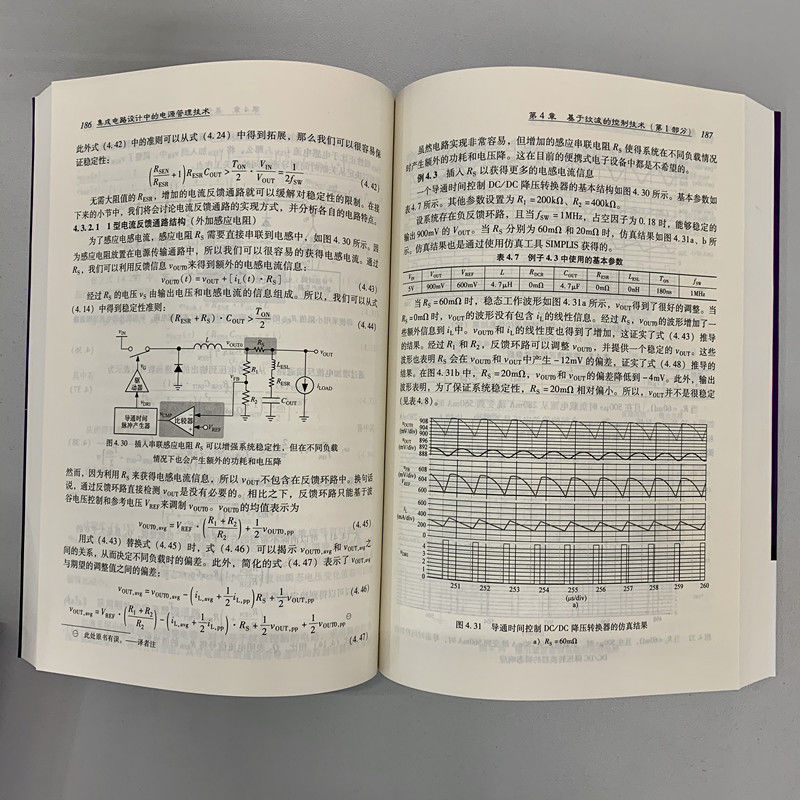 186 集成电路设计中的电源管理技术
此外式（4.42）中的准则可以从式（4.24）中得到拓展，那么我们可以很容易保
证稳定性：
(R_SEN/R_ESR + 1) R_ESR C_OUT > T_ON/2 · V_IN/V_OUT = 1/(2f_SW) （4.42）
无需大阻值的 R_ESR，增加的电流反馈通路就可以缓解对稳定性的限制。在接
下来的小节中，我们将会讨论电流反馈通路的实现方式，并分析各自的电路特点。
4.3.2.1 1型电流反馈通路结构（外加感应电阻）
为了感应电感电流，感应电阻 R_S 需要直接串联到电感中，如图 4.30 所示。因
为感应电阻放置在电源传输通路中，所以我们可以很容易的获得电感电流。通过
R_S，我们可以利用反馈信息 v_OUT0 来得到额外的电感电流信息：
v_OUT0(t) = v_OUT + [i_L(t) · R_S] （4.43）
经过 R_S 的电压 v_S 由输出电压和电感电流的信息组成。所以，我们可以从式
（4.14）中得到稳定性准则：
(R_ESR + R_S) · C_OUT > T_ON/2 （4.44）
v_IN
L
v_OUT0
R_S
v_OUT
L_ESL
R_ESR
C_OUT
i_LOAD
R_1
R_2
v_FB
v_G
驱
动器
v_DRI
导通时间
脉冲产生器
v_CMP
比较器
V_REF
图 4.30 插入串联感应电阻 R_S 可以增强系统稳定性，但在不同负载
情况下也会产生额外的功耗和电压降
然而，因为利用 R_S 来获得电感电流信息，所以 v_OUT 不包含在反馈环路中。换句话
说，通过反馈环路直接检测 v_OUT 是没有必要的。相比之下，反馈环路只能基于波
谷电压控制和参考电压 V_REF 来调制 v_OUT0。v_OUT0 的均值表示为
v_OUT0,avg = V_REF · ((R_1 + R_2)/R_2) + 1/2 v_OUT0,pp （4.45）
用式（4.43）替换式（4.45）时，式（4.46）可以揭示 v_OUT0,avg 和 v_OUT,avg 之
间的关系，从而决定不同负载时的偏差。此外，简化的式（4.47）表示了 v_OUT,avg
与期望的调整值之间的偏差：
v_OUT,avg = v_OUT0,avg − (i_L,avg + 1/2 i_L,pp) R_S + 1/2 v_OUT,pp （4.46）
v_OUT,avg = V_REF · ((R_1 + R_2)/R_2) − (i_L,avg + 1/2 i_L,pp) · R_S + 1/2 v_OUT,pp + 1/2 v_OUT0,pp ⊖
（4.47）
⊖ 此处原书有误。——译者注
第 4 章 基于纹波的控制技术（第 1 部分） 187
虽然电路实现非常容易，但增加的感应串联电阻 R_S 使得系统在不同负载情况
时产生额外的功耗和电压降。这在目前的便携式电子设备中都是不希望的。
例 4.3 插入 R_S 以获得更多的电感电流信息
一个导通时间控制 DC/DC 降压转换器的基本结构如图 4.30 所示。基本参数如
表 4.7 所示。其他参数设置为 R_1 = 200kΩ，R_2 = 400kΩ。
设系统存在负反馈环路，且当 f_SW = 1MHz，占空因子为 0.18 时，能够稳定的
输出 900mV 的 V_OUT。当 R_S 分别为 60mΩ 和 20mΩ 时，仿真结果如图 4.31a、b 所
示。仿真结果也是通过使用仿真工具 SIMPLIS 获得的。
表 4.7 例子 4.3 中使用的基本参数
V_IN V_OUT V_REF L R_DCR C_OUT R_ESR L_ESL T_ON f_SW
5V 900mV 600mV 4.7μH 0mΩ 4.7μF 0mΩ 0nH 180ns 1MHz
当 R_S = 60mΩ 时，稳态工作波形如图 4.31a 所示，v_OUT 得到了很好的调整。当
R_S = 0mΩ 时，v_OUT 的波形没有包含 i_L 的线性信息。经过 R_S，v_OUT0 的波形增加了一
些额外信息到 i_L 中。v_OUT0 和 i_L 的线性度也得到了增加，这证实了式（4.43）推导
的结果。经过 R_1 和 R_2，反馈环路可以调整 v_OUT0，并提供一个稳定的 v_OUT。这些
波形也表明 R_S 会在 v_OUT0 和 v_OUT 中产生 −12mV 的偏差，证实了式（4.48）推导的
结果。在图 4.31b 中，R_S = 20mΩ，v_OUT0 和 v_OUT 的偏差降低到 −4mV。此外，输出
波形表明，为了保证系统稳定性，R_S = 20mΩ 相对偏小。所以，v_OUT 并不是很稳定
（见表 4.8）。
v_OUT0
(mV/div)
v_OUT
(mV/div)
v_FB
(mV/div)
V_REF
i_L
(mA/div)
v_DRI
251 252 253 254 255 256 257 258 259 260
(μs/div)
a)
图 4.31 导通时间控制 DC/DC 降压转换器的仿真结果
a) R_S = 60mΩ